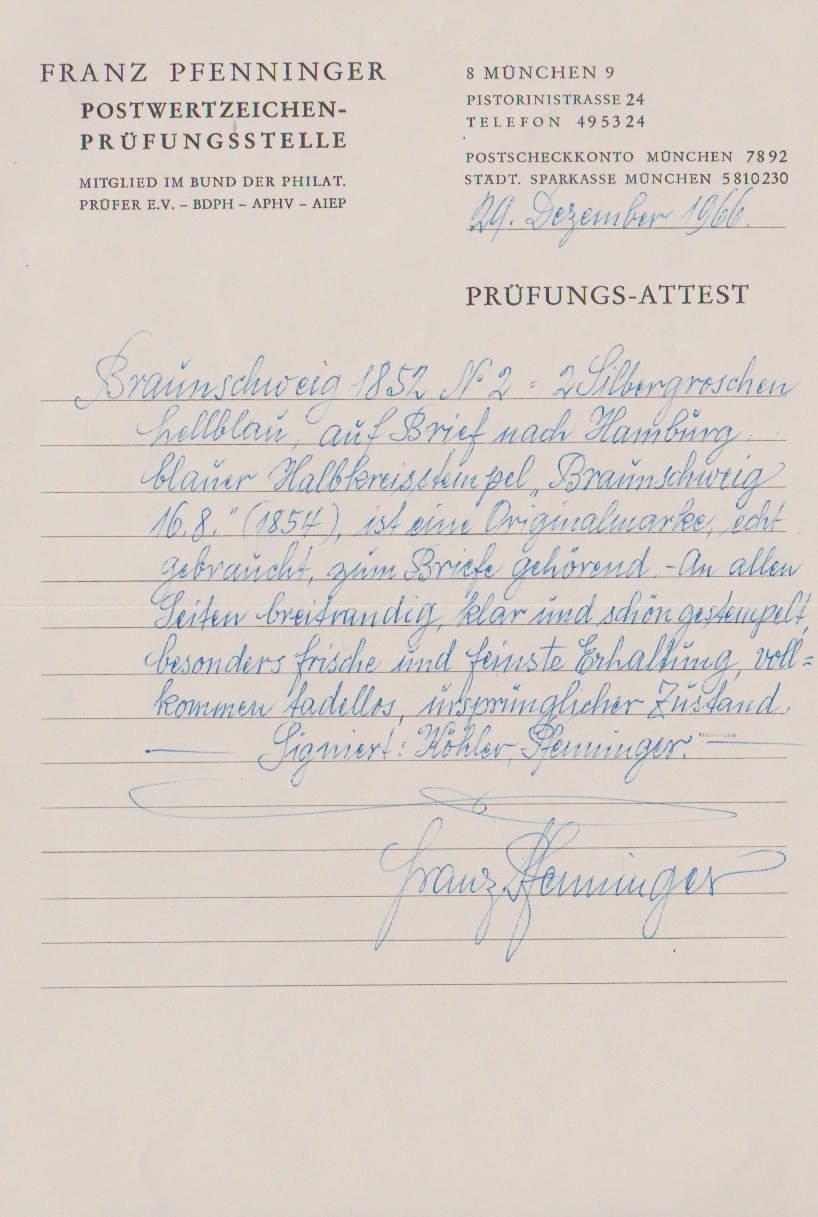 FRANZ PFENNINGER
POSTWERTZEICHEN-
PRÜFUNGSSTELLE
MITGLIED IM BUND DER PHILAT.
PRÜFER E.V. – BDPH – APHV – AIEP
8 MÜNCHEN 9
PISTORINISTRASSE 24
TELEFON 495324
POSTSCHECKKONTO MÜNCHEN 7892
STÄDT. SPARKASSE MÜNCHEN 5810230
29. Dezember 1966.
PRÜFUNGS-ATTEST
Braunschweig 1852 No 2 = 2 Silbergroschen
hellblau, auf Brief nach Hamburg,
blauer Halbkreisstempel „Braunschweig
16.8." (1854), ist eine Originalmarke, echt
gebraucht, zum Briefe gehörend. - An allen
Seiten breitrandig, klar und schön gestempelt,
besonders frische und feinste Erhaltung, voll=
kommen tadellos, ursprünglicher Zustand.
Signiert: Köhler, Pfenninger.
PFENNINGER
Franz Pfenninger